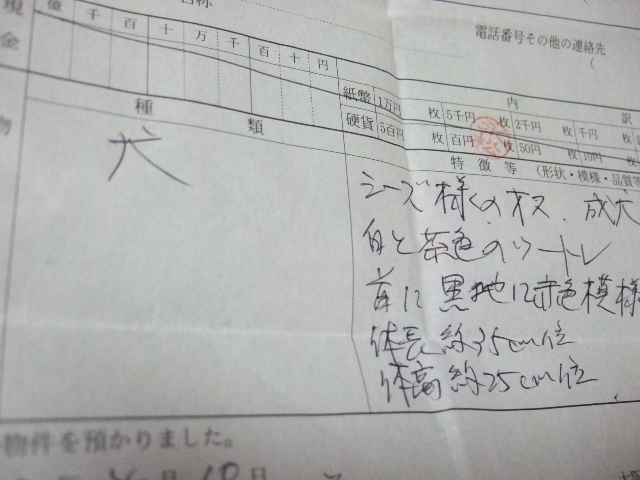 名称
電話番号その他の連絡先
(
現金
億 千 百 十 万 千 百 十 円
紙幣 1万円 枚 5千円 枚 2千円 枚 千円
内 訳
硬貨 5百円 枚 百円 枚 50円 枚 10円
物
種 類
特徴等 (形状・模様・品質等
犬
シーズ様のオス、成犬
白と茶色のツートン
首に黒地に赤色模様
体長約35cm位
体高約25cm位
物件を預かりました。
月18日